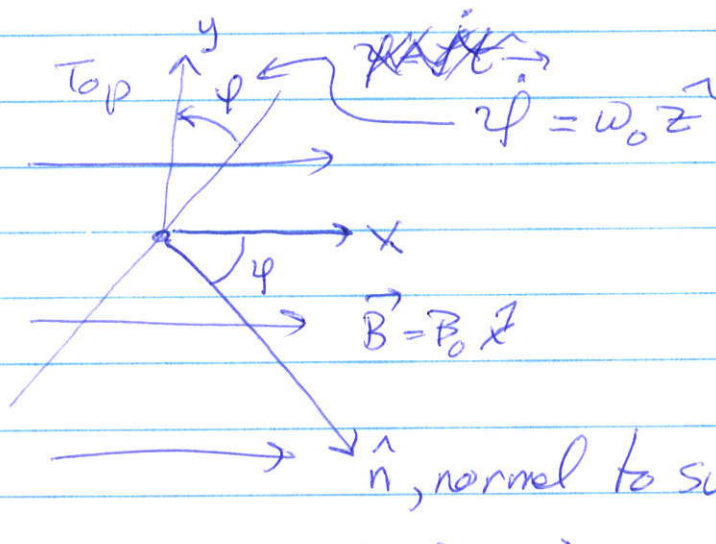 y
Top φ
φ̇ = ω₀ ẑ
x
φ
B⃗ = B₀ x̂
n̂, normal to su